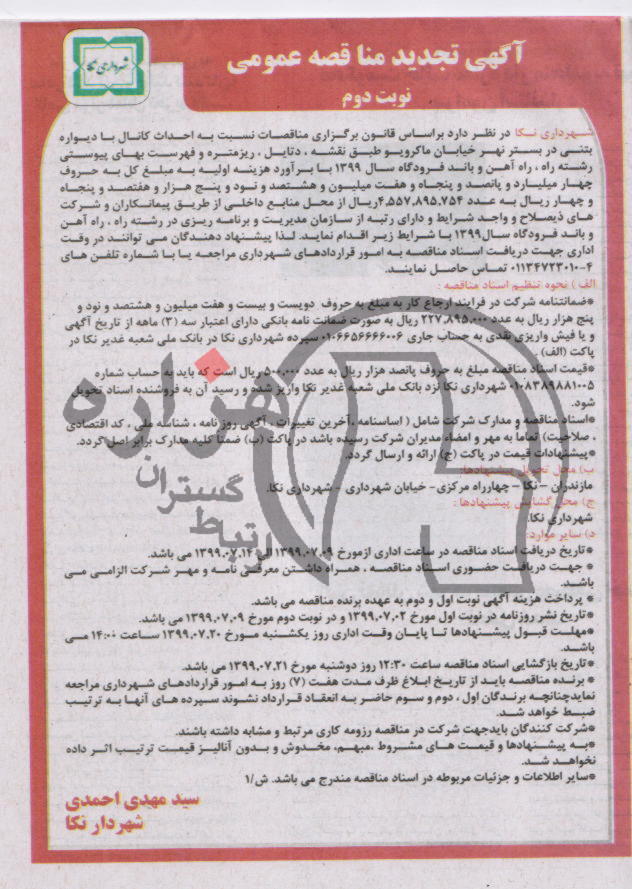 آگهی تجدید مناقصه عمومی
نوبت دوم
شهرداری نکا
شهرداری نکا در نظر دارد براساس قانون برگزاری مناقصات نسبت به احداث کانال با دیواره
بتنی در بستر نهر خیابان ماکرویو طبق نقشه ، دتایل ، ریزمتره و فهرست بهای پیوستی
رشته راه ، راه آهن و باند فرودگاه سال ۱۳۹۹ با برآورد هزینه اولیه به مبلغ کل به حروف
چهار میلیارد و پانصد و پنجاه و هفت میلیون و هشتصد و نود و پنج هزار و هفتصد و پنجاه
و چهار ریال به عدد ۴،۵۵۷،۸۹۵،۷۵۴ریال از محل منابع داخلی از طریق پیمانکاران و شرکت
های ذیصلاح و واجد شرایط و دارای رتبه از سازمان مدیریت و برنامه ریزی در رشته راه ، راه آهن
و باند فرودگاه سال۱۳۹۹ با شرایط زیر اقدام نماید. لذا پیشنهاد دهندگان می توانند در وقت
اداری جهت دریافت اسناد مناقصه به امور قراردادهای شهرداری مراجعه یا با شماره تلفن های
۴-۰۱۱۳۴۷۲۳۰۱۰ تماس حاصل نمایند.
الف ) نحوه تنظیم اسناد مناقصه :
*ضمانتنامه شرکت در فرایند ارجاع کار به مبلغ به حروف دویست و بیست و هفت میلیون و هشتصد و نود و
پنج هزار ریال به عدد ۲۲۷،۸۹۵،۰۰۰ ریال به صورت ضمانت نامه بانکی دارای اعتبار سه (۳) ماهه از تاریخ آگهی
و یا فیش واریزی نقدی به حساب جاری ۰۱۰۶۶۵۶۶۶۶۰۰۶ سپرده شهرداری نکا در بانک ملی شعبه غدیر نکا در
پاکت (الف) .
*قیمت اسناد مناقصه مبلغ به حروف پانصد هزار ریال به عدد ۵۰۰،۰۰۰ ریال است که باید به حساب شماره
۰۱۰۸۳۸۹۸۸۱۰۰۵ شهرداری نکا نزد بانک ملی شعبه غدیر نکا واریز شده و رسید آن به فروشنده اسناد تحویل
شود.
*اسناد مناقصه و مدارک شرکت شامل ( اساسنامه ،آخرین تغییرات ، آگهی روزنامه ، شناسه ملی ، کد اقتصادی
، صلاحیت) تماما به مهر و امضاء مدیران شرکت رسیده باشد در پاکت (ب) ضمنا کلیه مدارک برابر اصل گردد.
*پیشنهادات قیمت در پاکت (ج) ارائه و ارسال گردد.
ب) محل تحویل پیشنهادها:
مازندران – نکا – چهارراه مرکزی- خیابان شهرداری – شهرداری نکا.
ج) محل گشایش پیشنهادها :
شهرداری نکا.
د) سایر موارد:
*تاریخ دریافت اسناد مناقصه در ساعت اداری ازمورخ ۱۳۹۹،۰۷،۰۹ الی ۱۳۹۹،۰۷،۱۴ می باشد.
* جهت دریافت حضوری اسناد مناقصه ، همراه داشتن معرفی نامه و مهر شرکت الزامی می
باشد.
* پرداخت هزینه آگهی نوبت اول و دوم به عهده برنده مناقصه می باشد.
*تاریخ نشر روزنامه در نوبت اول مورخ ۱۳۹۹،۰۷،۰۲ و در نوبت دوم مورخ ۱۳۹۹،۰۷،۰۹ می باشد.
*مهلت قبول پیشنهادها تا پایان وقت اداری روز یکشنبه مورخ ۱۳۹۹،۰۷،۲۰ ساعت ۱۴:۰۰ می
باشد.
*تاریخ بازگشایی اسناد مناقصه ساعت ۱۲:۳۰ روز دوشنبه مورخ ۱۳۹۹،۰۷،۲۱ می باشد.
* برنده مناقصه باید از تاریخ ابلاغ ظرف مدت هفت (۷) روز به امور قراردادهای شهرداری مراجعه
نمایدچنانچه برندگان اول ، دوم و سوم حاضر به انعقاد قرارداد نشوند سپرده های آنها به ترتیب
ضبط خواهد شد.
*شرکت کنندگان بایدجهت شرکت در مناقصه رزومه کاری مرتبط و مشابه داشته باشند.
*به پیشنهادها و قیمت های مشروط ،مبهم، مخدوش و بدون آنالیز قیمت ترتیب اثر داده
نخواهد شد.
*سایر اطلاعات و جزئیات مربوطه در اسناد مناقصه مندرج می باشد. ش/۱
سید مهدی احمدی
شهردار نکا
هزاره
گستران
ارتباط